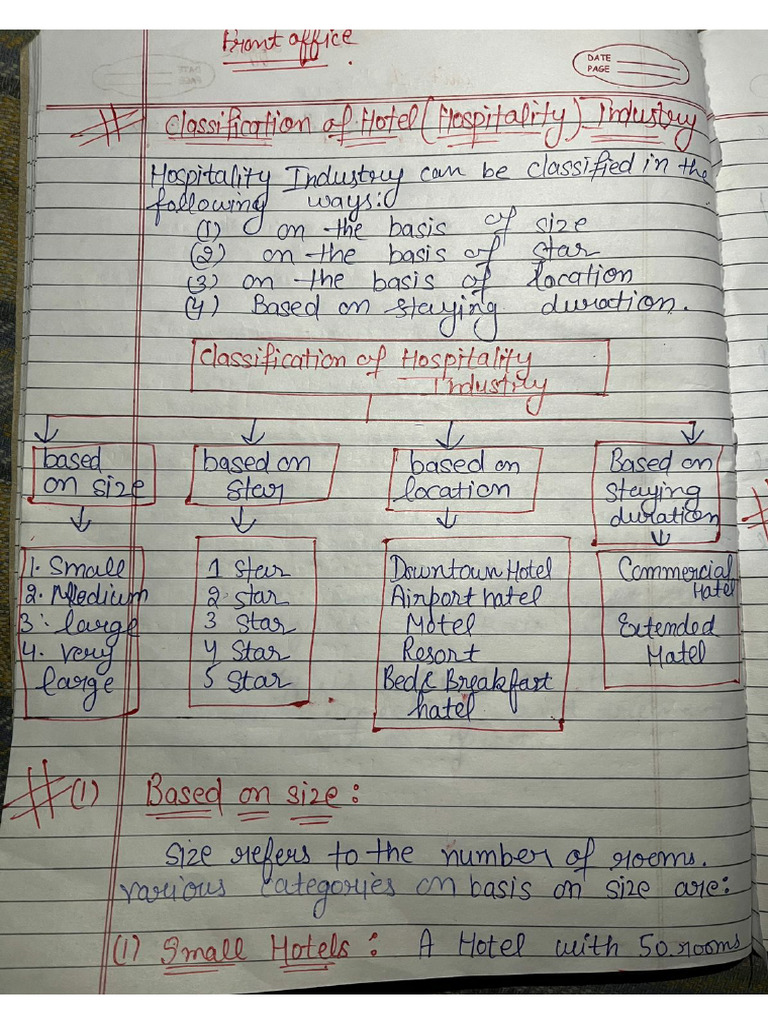 Front office
DATE
PAGE
Classification of Hotel (Hospitality) Industry
Hospitality Industry can be classified in the
following ways:
(1) on the basis of size
(2) on the basis of star
(3) on the basis of location
(4) Based on staying duration.
Classification of Hospitality
Industry
based on size
based on star
based on location
Based on staying duration
1. Small
2. Medium
3. large
4. very
large
1 Star
2 star
3 Star
4 Star
5 Star
Downtown Hotel
Airport hatel
Motel
Resort
Bed & Breakfast
hatel
Commercial
Hatel
Extended
Hatel
# (1) Based on size:
Size refers to the number of rooms.
various categories on basis on size are:
(1) Small Hotels: A Hotel with 50 rooms